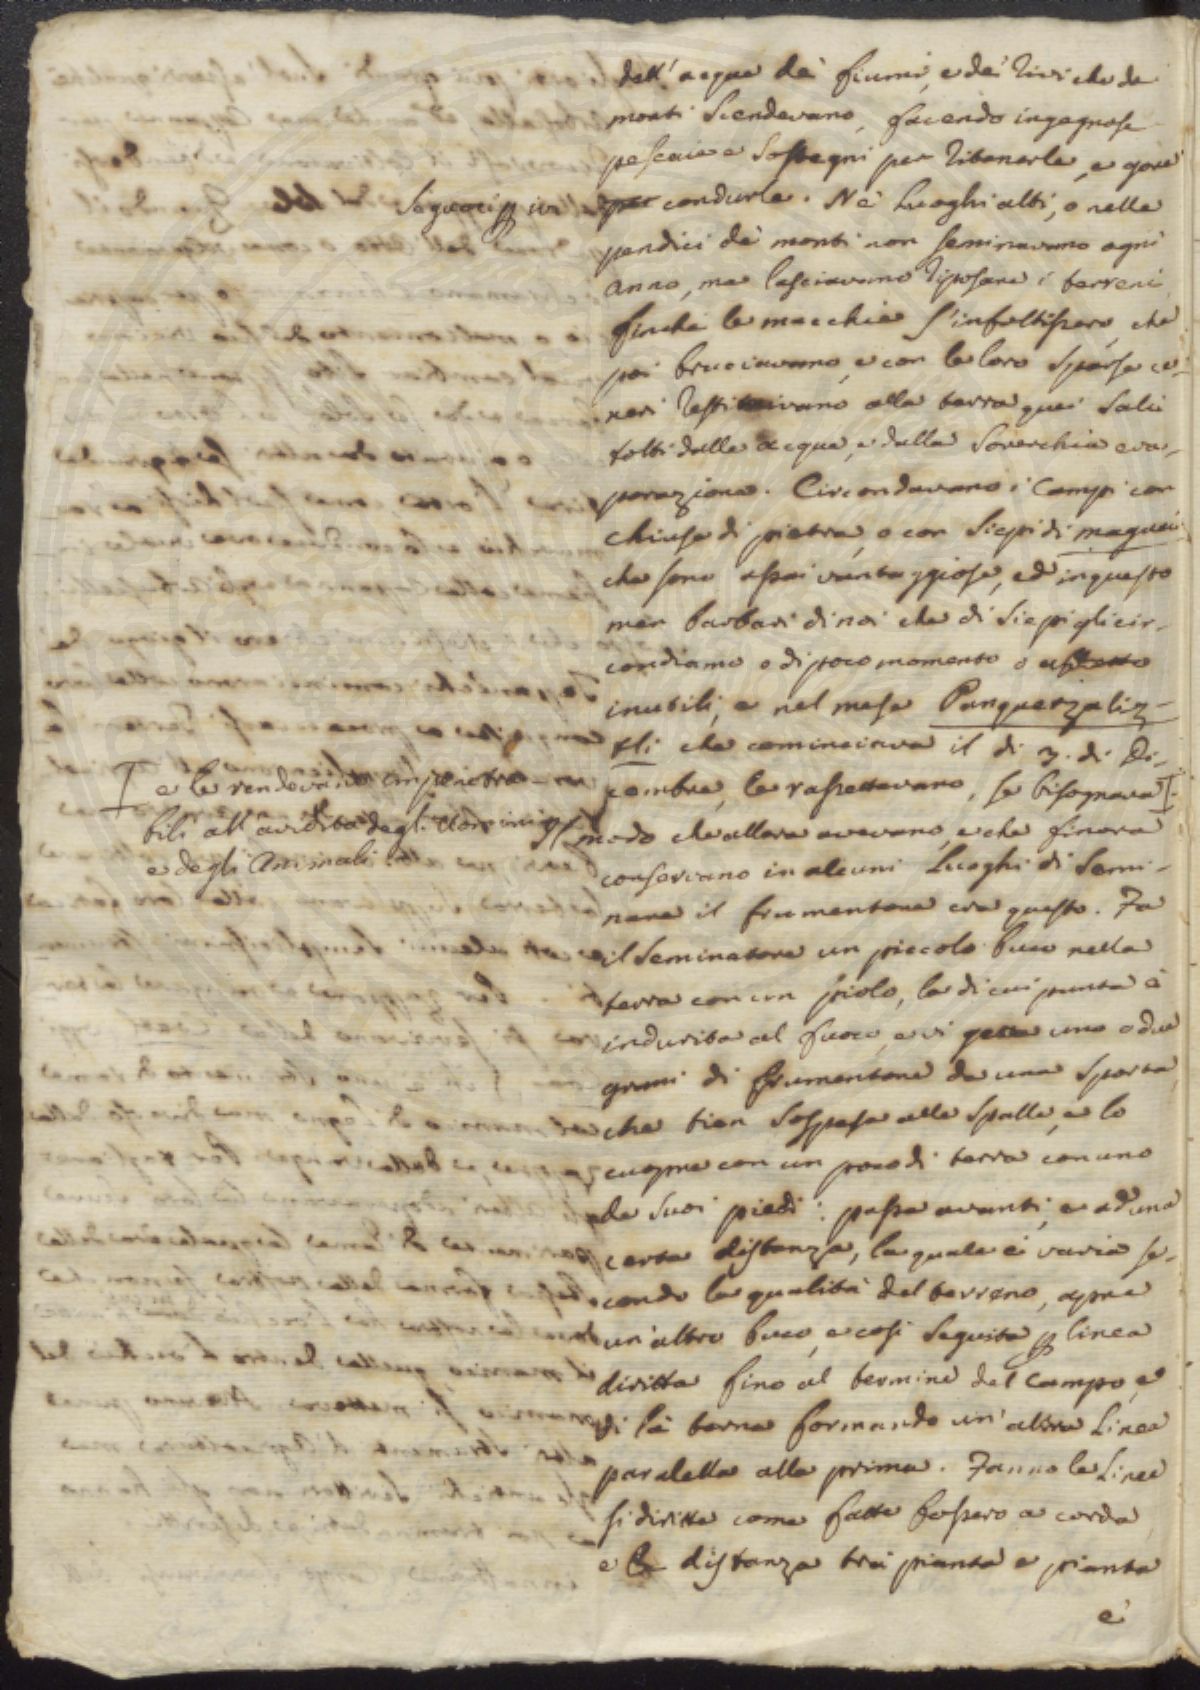 dell'acqua de' fiumi, e de' rivi che da
monti scendevano, facendo ingegnose
pescaie e sostegni per ritenerle, e gore
per condurle. Ne' luoghi alti, o nelle
pendici de' monti non seminavano ogni
anno, ma lasciavano riposare i terreni
finché le macchie s'infoltissero, che
poi bruciavano, e con le loro sparse ce-
neri restituivano alla terra quei sali
tolti dalle acque, e dalla soverchia eva-
porazione. Circondavano i campi con
chiuse di pietra, o con siepi di maguei
che sono assai vantaggiose, ed in questo
men barbari di noi che di siepi gli cir-
condiamo o di poco momento o affatto
inutili, e nel mese Panquetzaliz-
tli che cominciava il dì 3. di Di-
cembre, le rassettavano, se bisognava I.
I e le rendevano impenetra-
bili all'avidità degli uomini
e degli animali
Il modo che allora avevano, e che finora
conservano in alcuni luoghi di semi-
nare il frumentone era questo. Fa
il seminatore un piccolo buco nella
terra con un piolo, la di cui punta è
indurita al fuoco, e vi getta uno o due
grani di frumentone da una sporta
che tien sospesa alle spalle, e lo
cuopre con un poco di terra con uno
de suoi piedi: passa avanti, e ad una
certa distanza, la quale è varia se-
condo la qualità del terreno, apre
un'altro buco, e così seguita p linea
diritta fino al termine del campo, e
di là torna formando un'altra linea
paralella alla prima. Fanno le linee
sì diritte come fatte fossero a corda,
e la distanza trà pianta e pianta
è